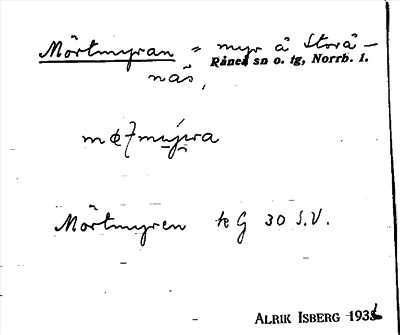 Mörtmyran = myr å Storå-
näs,
Råneå sn o. tg, Norrb. l.
Mörtmyren tk G 30 S.V.
ALRIK ISBERG 1935